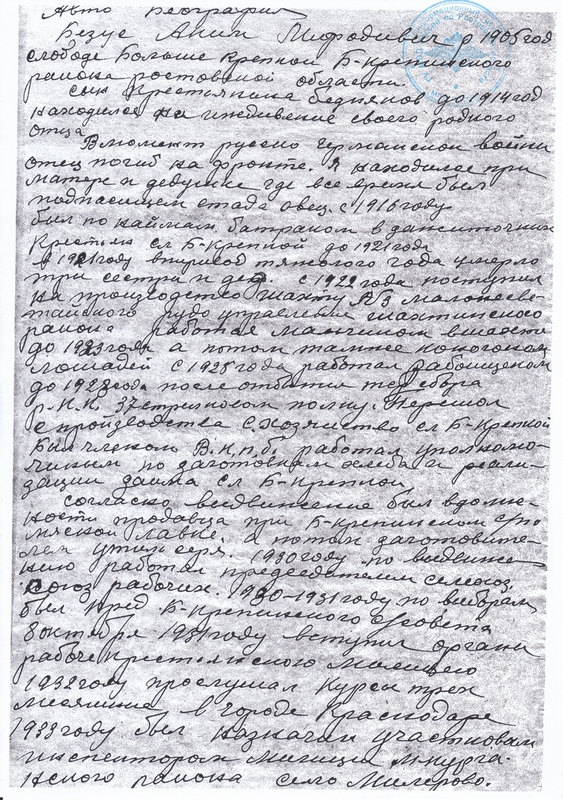 Авто Биография
Безус Акин Мифодивич р 1905 год
слободе Больше Крепкой Б-крепинского
района ростовской области.
сын Крестьянина бедняков до 1914 год
находился на иждивение своего родного
отца
В момент русско германской войни
отец погиб на фронте. Я находился при
матере и дедушке где все время был
подпасещем стада овец. с 1916 году
был по наймам батраком в зажиточних
Крестьян сл Б-Крепкой до 1921 года
в 1921 году впириод тяжолого года умерло
три сестри и дед. с 1922 года поступил
на производство шахту
рудоуправления шахтинского
района работал в шахте
до 1923 года а потом тамже коногоном
лошадей с 1925 года работал
до 1928 года после отбития
Р.К.К. 37 стрелковом полку. Перешол
с произвоцтва С.хозяйство сл Б-Крепкой
Бил членом В.К.п.б. работал уполномо-
чиним по заготовкам хлеба и реали-
зации займа сл Б-Крепкой
согласко видвижение был вдолж-
ности продавца при Б-крепинском
лавке. а потом заготовите-
лем утиль серя. 1930 году по видвиже-
нию работал председателем
союз рабочих. 1930-1931 году по виборам
был пред Б-крепинского с/совета
8 октября 1931 году вступил органи
рабоче крестьянского Милицию
1932 году прослушал Курси трех
месячние в городе Краснодаре
1933 году был назначин участковим
инспектором Милиции
района село Милерово.